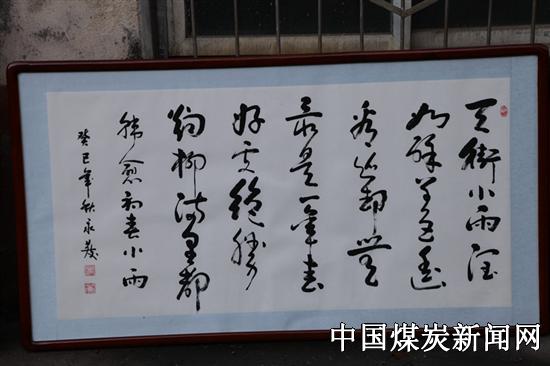 天街小雨润
如酥草色遥
看近却无
最是一年春
好处绝胜
烟柳满皇都
韩愈初春小雨
癸巳年秋永
中国煤炭新闻网